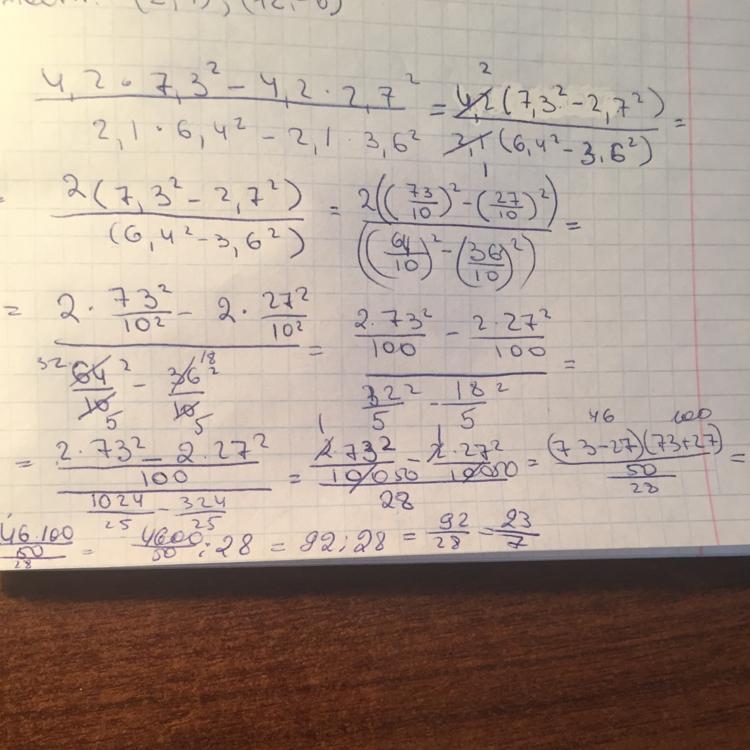 (4,2 · 7,3² − 4,2 · 2,7²)/(2,1 · 6,4² − 2,1 · 3,6²) = 4,2 2 (7,3² − 2,7²)/2,1 1 (6,4² − 3,6²) =
2(7,3² − 2,7²)/(6,4² − 3,6²) = 2((73/10)² − (27/10)²)/((64/10)² − (36/10)²) =
= (2 · 73²/10² − 2 · 27²/10²)/(64 32 ²/10 5 − 36 18 ²/10 5) = (2·73²/100 − 2·27²/100)/(32²/5 − 18²/5) =
= ((2·73² − 2·27²)/100)/(1024/25 − 324/25) = (2 1 ·73²/100 50 − 2 1 ·27²/100 50)/28 = (73−27)(73+27) 46 100 / 50/28 =
46·100/50/28 = 4600/50 : 28 = 92 : 28 = 92/28 = 23/7